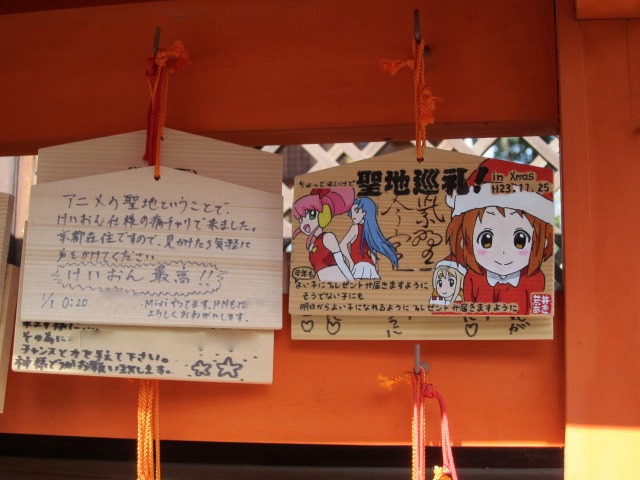 アニメの聖地ということで、
けいおん仕様の痛チャリで来ました。
京都在住ですので、見かけたら気軽に
声をかけてください。
けいおん 最高!!
1/1 0:20
Mixiやってます。HNもに
よろしくおねがいします。
その為に
チャンスと力を与えて下さい。
神様どうかお願い致します。
ちょっと早いけど
聖地巡礼!
in Xmas
H23.11.25
今年も
よい子にプレゼントが届きますように
そうでない子にも
明日からよい子になれるようにプレゼントが届きますように